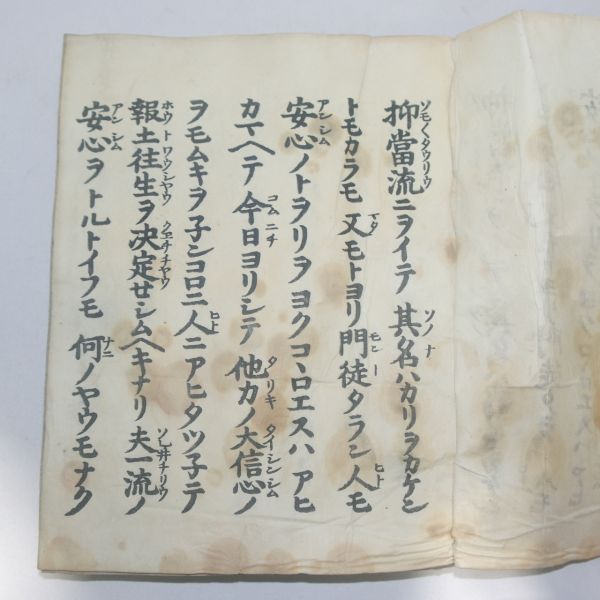 抑當流ニヲイテ 其名ハカリヲカケン
トモカラモ 又モトヨリ門徒タラン人モ
安心ノトヲリヲ ヨクコヽロエスハ アヒ
カマヘテ 今日ヨリシテ 他力ノ大信心ノ
ヲモムキヲ 子ンコロニ人ニアヒタツ子テ
報土往生ヲ決定セシムヘキナリ 夫一流ノ
安心ヲトルトイフモ 何ノヤウモナク